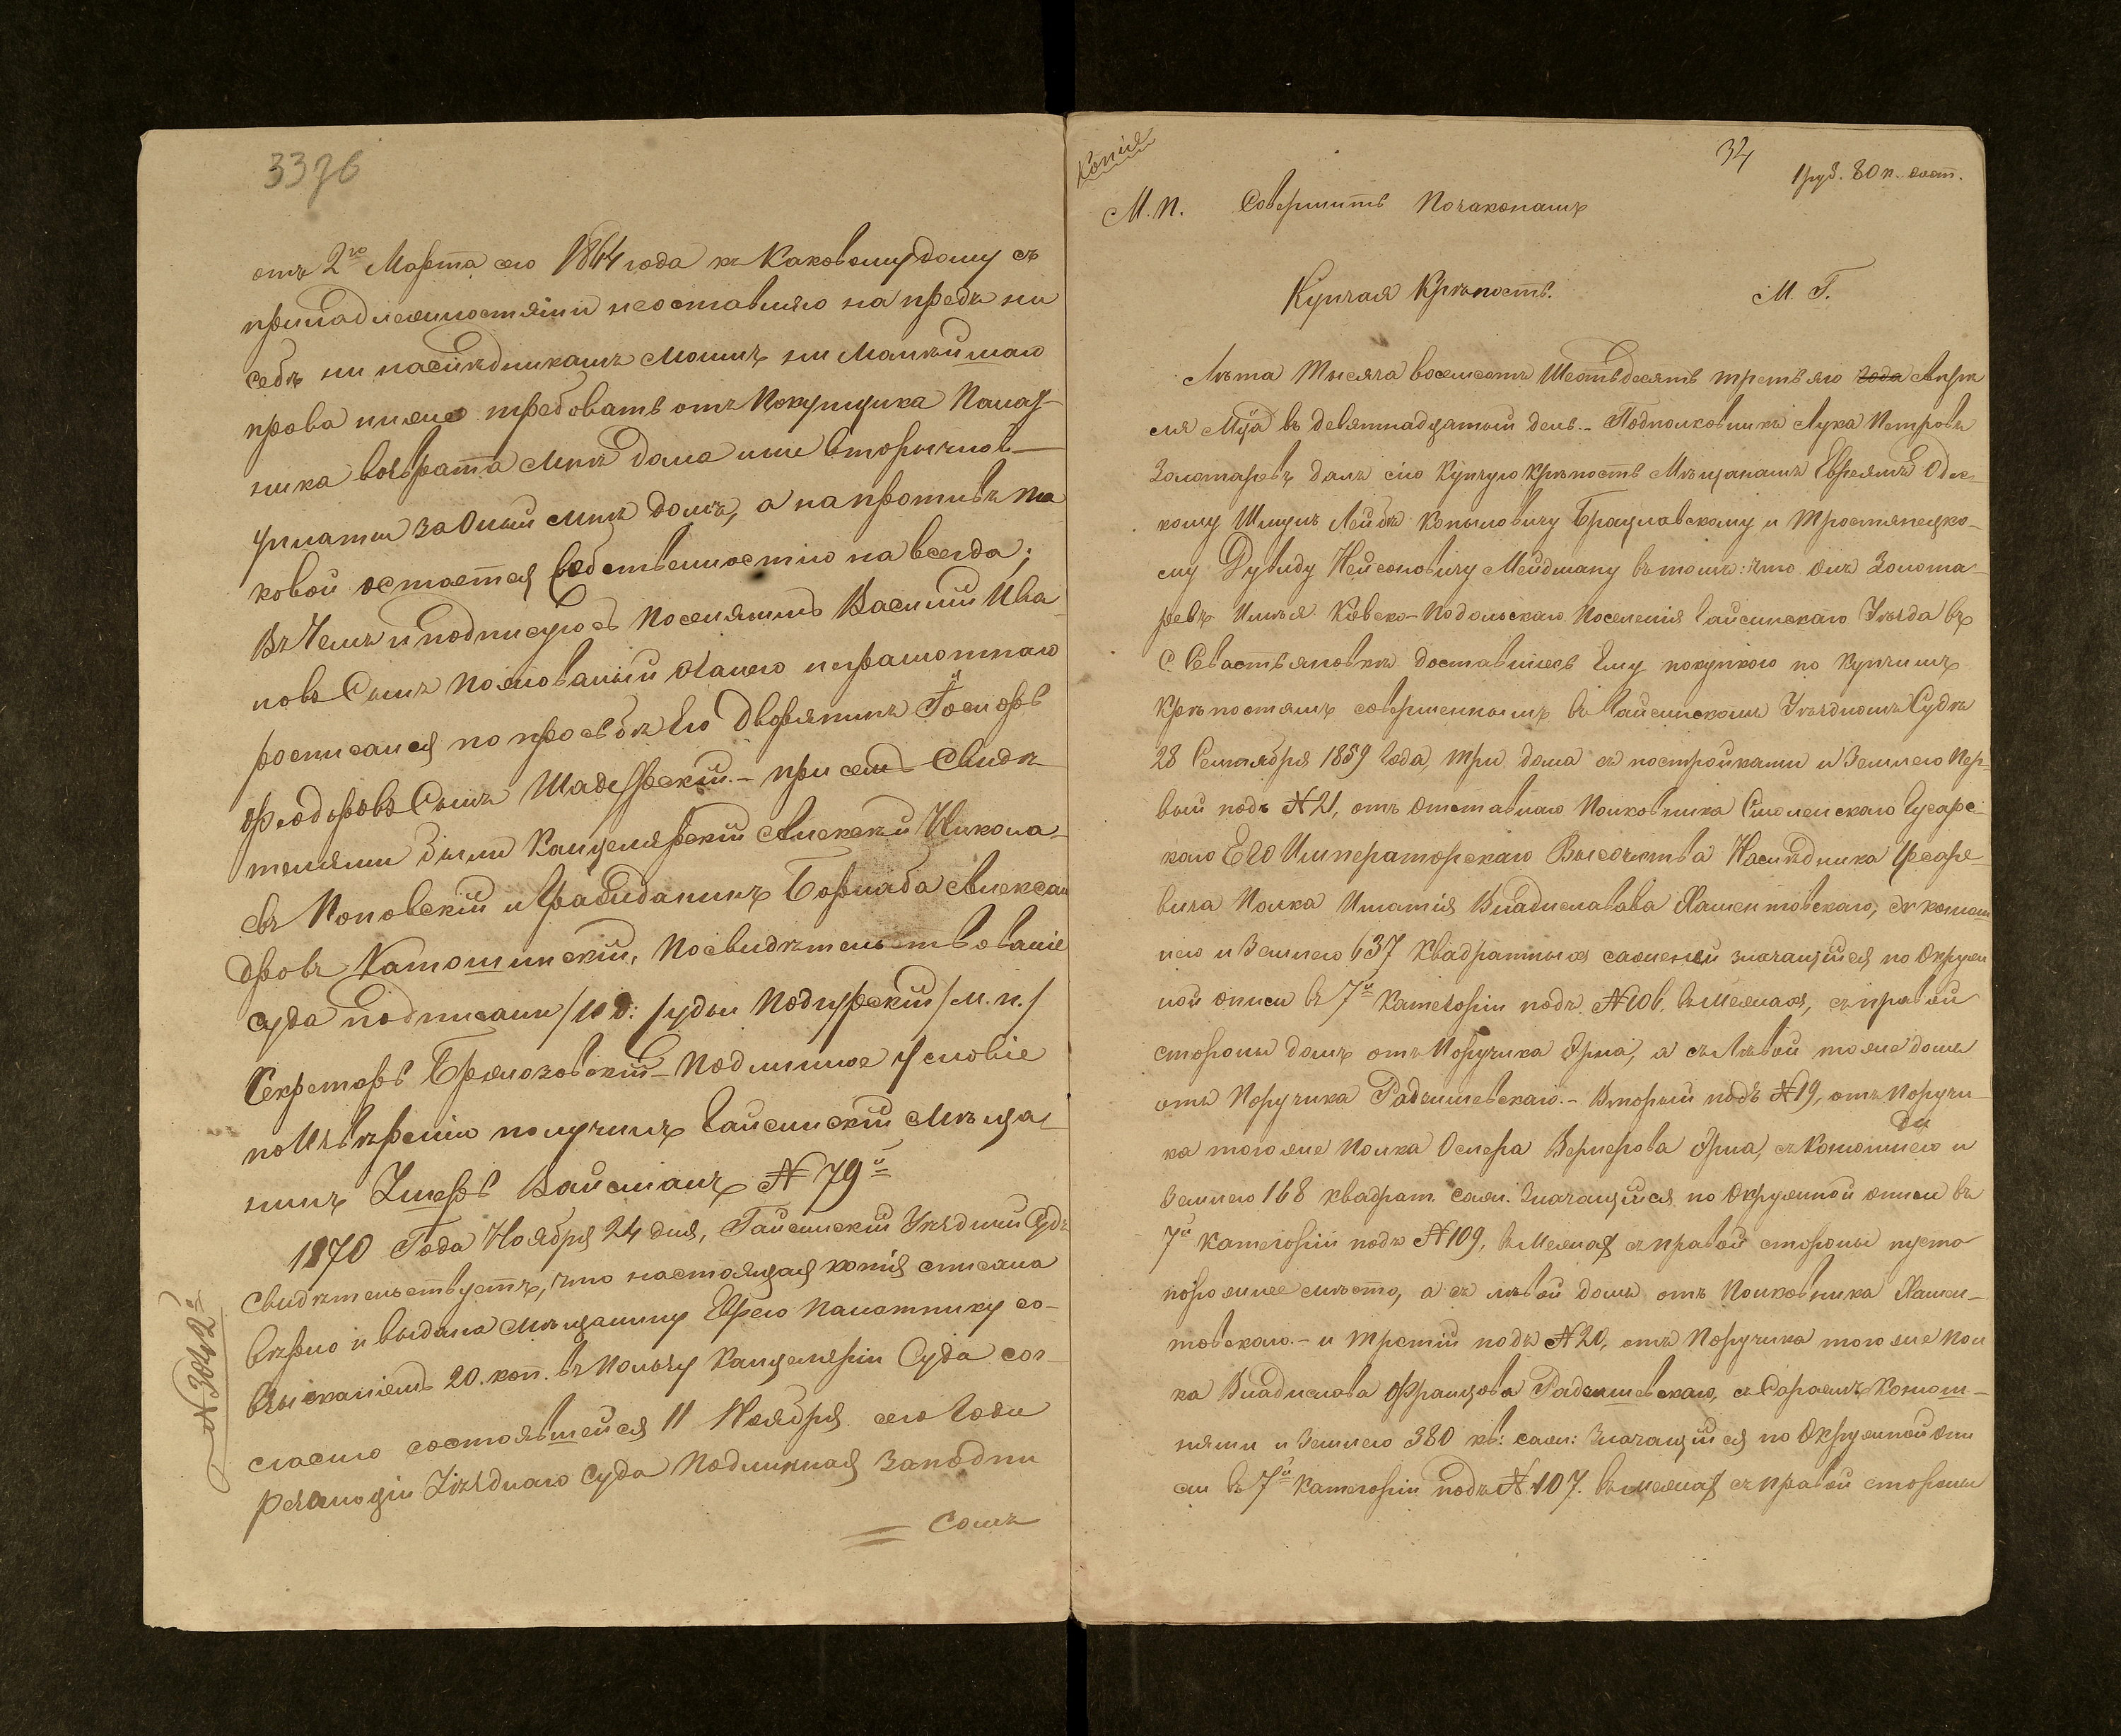 3376
отъ 2го Марта сего 1864 года къ каковому дому съ
принадлежностями неоставляю на предъ ни
себѣ ни наслѣдникамъ моимъ ни малѣйшаго
права ниже требовать отъ Покупщика Палат-
ника возврата мнѣ дома или вторичной
уплаты за оный мнѣ домъ, а напротивъ та
ковой остается собственностію на всегда;
Въ чемъ и подписуюсь Поселянинъ Василій Ива
новъ Сынъ а за него неграмотнаго
росписался по просьбѣ его Дворянинъ Іосифъ
Феодоровъ Сынъ – при семъ Свидѣ
телями были Канцелярскій Алексѣй Никола-
евъ Поповскій и Гражданинъ Александ
ровъ посвидѣтельствованіе
суда подписали /И д: Судьи /м. п./
Секретарь Подлинное Условіе
по Извѣренію получилъ Гайсинскій Мѣща
нинъ Вайсманъ № 79й
1870 Года Ноября 24 дня, Гайсинскій Уѣздный Судъ
свидѣтельствуетъ, что настоящая копія списана
вѣрно и выдана мѣщанину Еврею Палатнику со
взысканіемъ 20. коп. въ пользу Канцеляріи Суда сог-
ласно состоявшейся 11 Ноября сего Года
резолюціи Уѣзднаго Суда Подлинная за подпи
сомъ
№ 3042й
Копія
34
1 руб. 80 к. сот.
М. П. Совершить Позаконамъ
Купчая Крѣпость. М. Г.
Лѣта Тысяча восемсотъ Шестьдесять третьяго года Апрѣ
ля М-ца въ девятнадцатый день.– Подполковникъ Лука Петровъ
Золотаревъ далъ сію Купчую Крѣпость Мѣщанамъ Евреямъ Одес-
кому Шмулъ Лейбѣ Копыловичу Брацлавскому и Тростянецко-
му Дувиду Нейсоновичу Мейдману въ томъ: что онъ Золота-
ревъ Имѣя Кіевско-Подольскаго Поселенія Гайсинскаго Уѣзда въ
С. Севастьяновкѣ доставшіесь Ему покупкою по Купчимъ
Крѣпостямъ совершеннымъ въ Гайсинскомъ Уѣздномъ Судѣ
28 Сентября 1859 Года три дома съ постройками и Землею Пер-
вый подъ № 21, отъ отставнаго Полковника Смоленскаго Гусарс-
каго Его Императорскаго Высочества Наслѣдника Цесаре-
вича Полка Игнатія Владиславава съ конюш
нею и Землею 637 Квадратныхъ саженей значащійся по Окруж
ной описи въ 7й Категоріи подъ № 106, въ межахъ, съ правой
стороны домъ отъ Поручика Эрна, а съ Лѣвой тоже домъ
отъ Поручика Радишевскаго.– Вторый подъ № 19, отъ Поручи-
ка того же Полка Оскера Вернерова Эрна, съ Конюшнею и
Землею 168 квадрат. саж. Значащійся по Окружной описи въ
7й категоріи подъ № 109, въ Межахъ съ правой стороны пусто
порожнее мѣсто, а съ лѣвой домъ отъ Полковника
товскаго.– и третій подъ № 20, отъ Поручика того же Пол
ка Владислава Францова Радишевскаго, съ Сараемъ Конюш-
нями и Землею 380 кв: саж: Значащійся по Окружной Опи
си въ 7й Категоріи подъ № 107. въ межахъ съ правой стороны